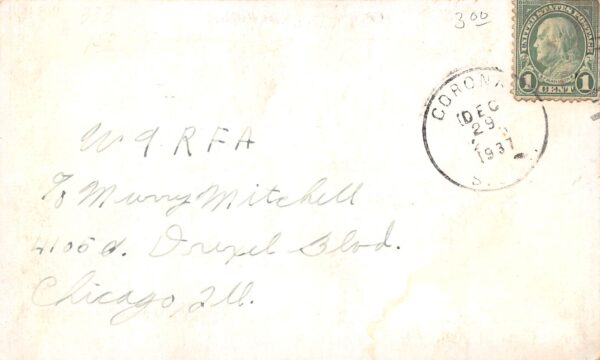 3.00
UNITED STATES POSTAGE
1 CENT 1
CORONA
DEC
29
1937
S.
W9RFA
% Murry Mitchell
Drexel Blvd.
Chicago, Ill.